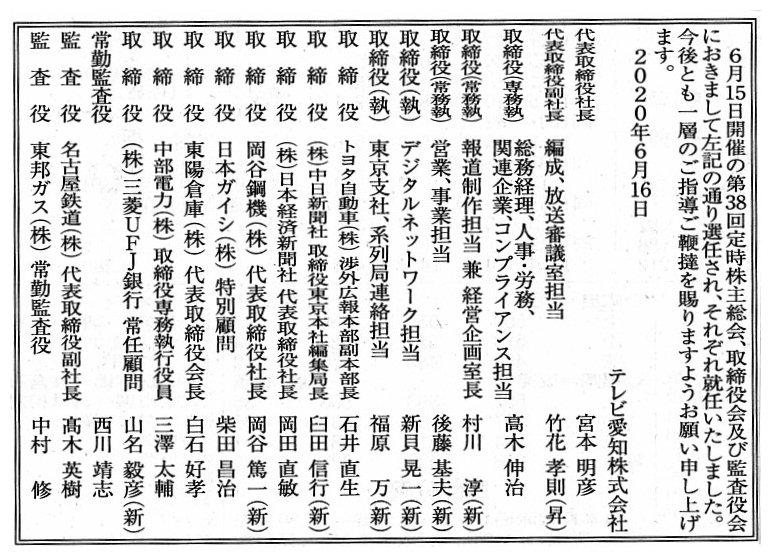 6月15日開催の第38回定時株主総会、取締役会及び監査役会
におきまして左記の通り選任され、それぞれ就任いたしました。
今後とも一層のご指導ご鞭撻を賜りますようお願い申し上げ
ます。
2020年6月16日
テレビ愛知株式会社
代表取締役社長 宮本 明彦
代表取締役副社長 編成、放送審議室担当 竹花 孝則(昇)
取締役(専務執) 総務経理、人事・労務、関連企業、コンプライアンス担当 高木 伸治
取締役(常務執) 報道制作担当 兼 経営企画室長 村川 淳(新)
取締役(常務執) 営業、事業担当 後藤 基夫(新)
取締役(執) デジタルネットワーク担当 新貝 晃一(新)
取締役(執) 東京支社、系列局連絡担当 福原 万(新)
取締役 トヨタ自動車(株) 渉外広報本部副本部長 石井 直生
取締役 (株)中日新聞社 取締役東京本社編集局長 臼田 信行(新)
取締役 (株)日本経済新聞社 代表取締役社長 岡田 直敏
取締役 岡谷鋼機(株) 代表取締役社長 岡谷 篤一(新)
取締役 日本ガイシ(株) 特別顧問 柴田 昌治
取締役 東陽倉庫(株) 代表取締役会長 白石 好孝
取締役 中部電力(株) 取締役専務執行役員 三澤 太輔
取締役 (株)三菱UFJ銀行 常任顧問 山名 毅彦(新)
常勤監査役 西川 靖志
監査役 名古屋鉄道(株) 代表取締役副社長 髙木 英樹
監査役 東邦ガス(株) 常勤監査役 中村 修